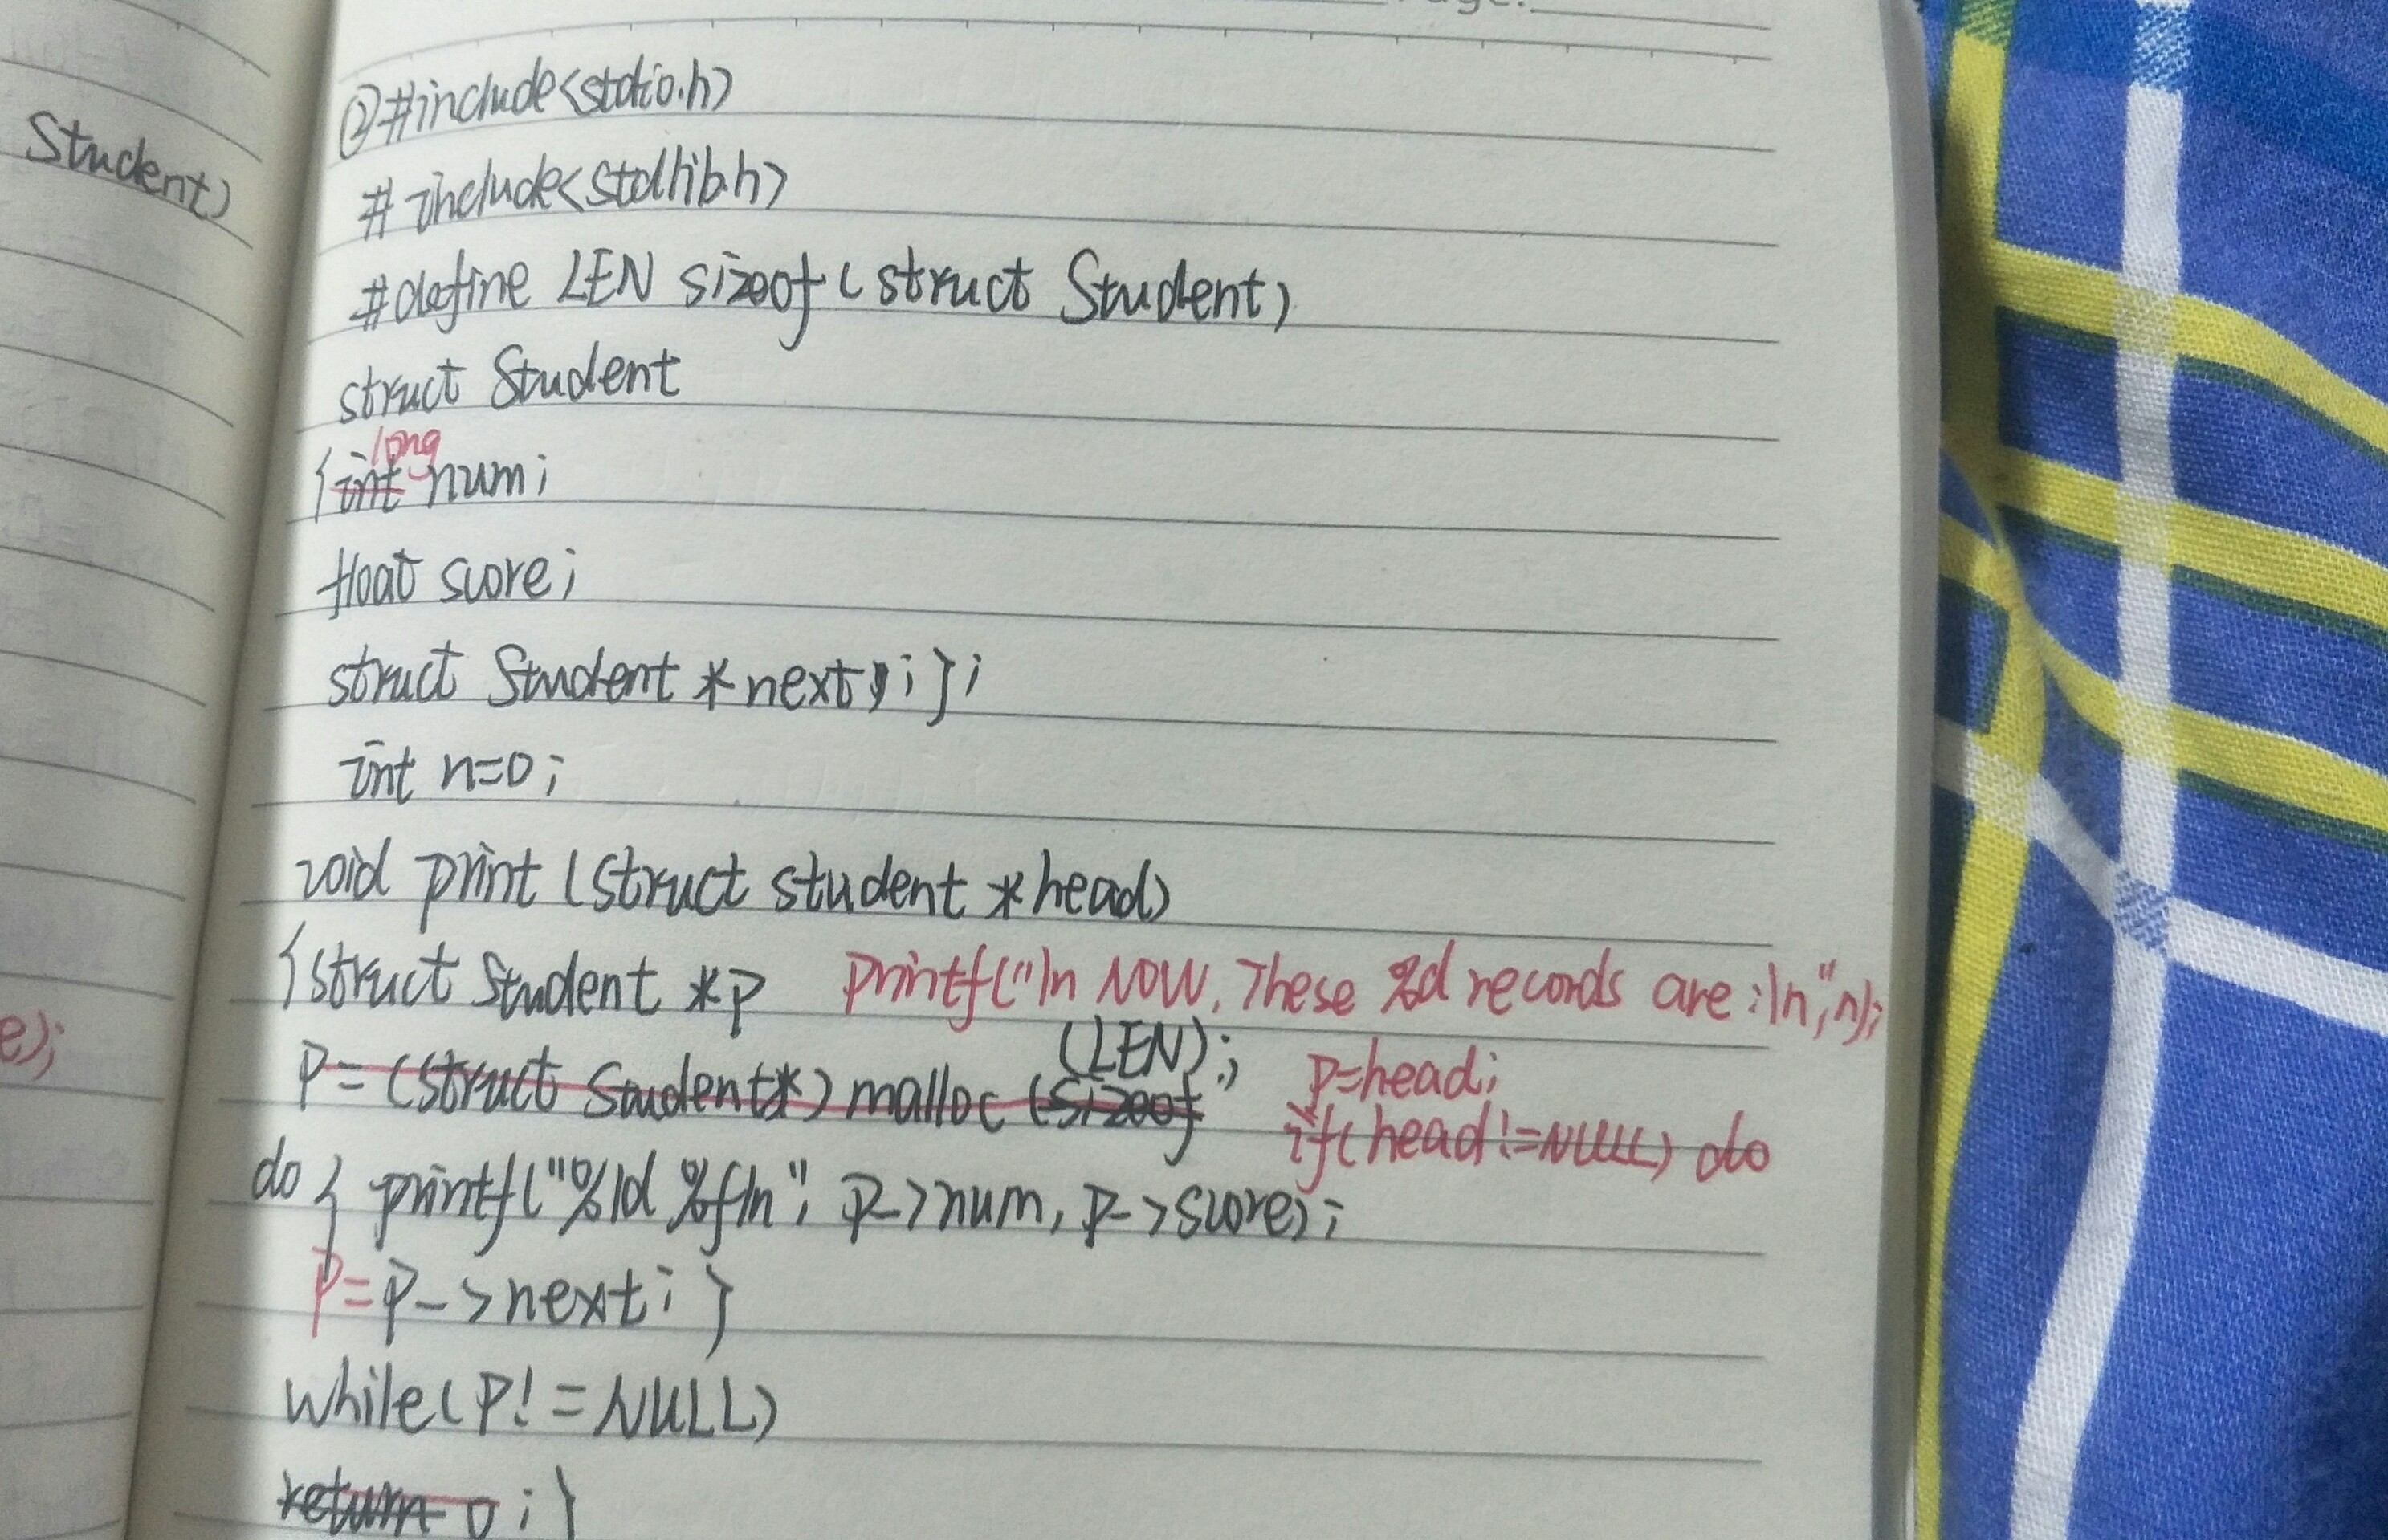 Student)
e);
②#include<stdio.h>
# include<stdlib.h>
#define LEN sizeof (struct Student)
struct Student
long
{int num;
float score;
struct Student *next;};
int n=0;
void print (struct student *head)
{struct Student *p printf("\n NOW, These %d records are:\n",n);
(LEN);
P=(struct Student*) malloc (sizeof p=head;
if(head!=NULL) do
do { printf("%ld %f\n", p->num, p->score);
P=P->next; }
while(P!=NULL)
return 0;}